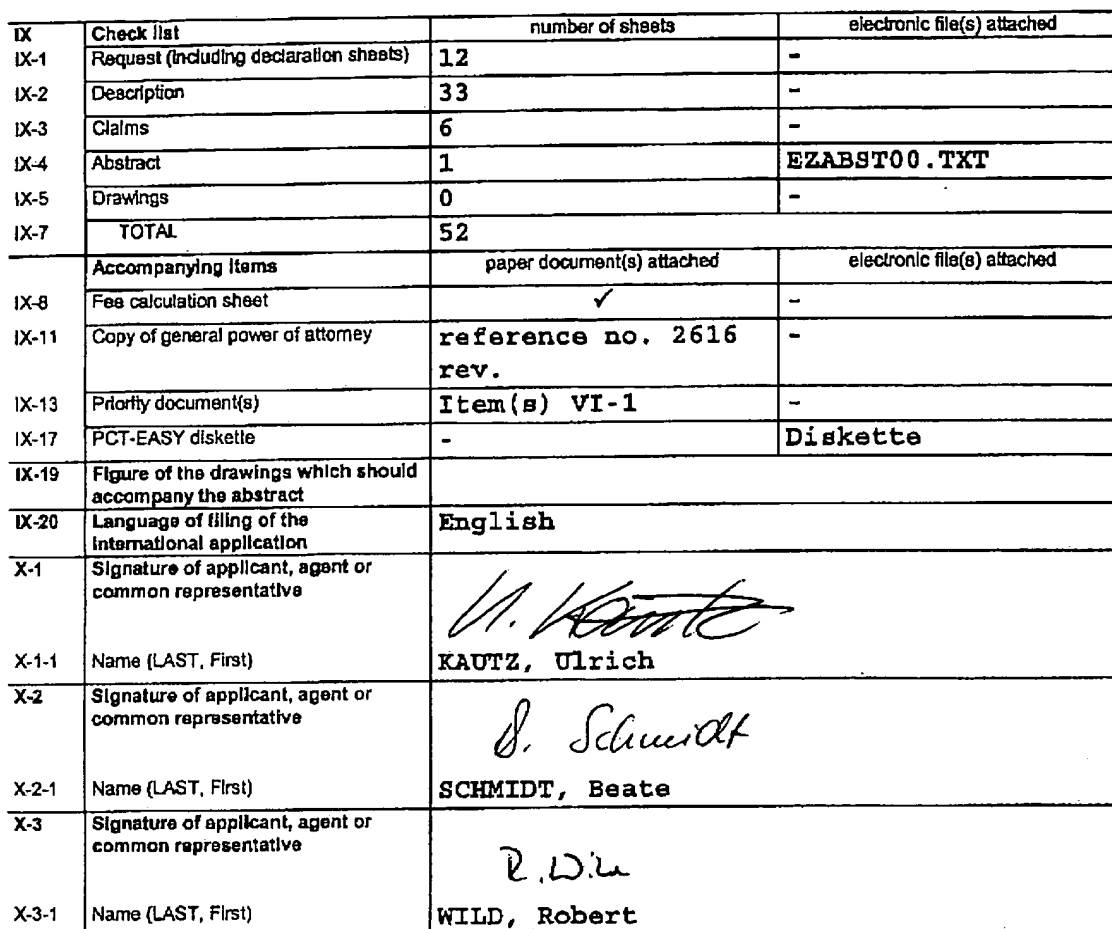 IX Check list number of sheets electronic file(s) attached
IX-1 Request (including declaration sheets) 12 -
IX-2 Description 33 -
IX-3 Claims 6 -
IX-4 Abstract 1 EZABST00.TXT
IX-5 Drawings 0 -
IX-7 TOTAL 52
Accompanying items paper document(s) attached electronic file(s) attached
IX-8 Fee calculation sheet ✓ -
IX-11 Copy of general power of attorney reference no. 2616 -
rev.
IX-13 Priority document(s) Item(s) VI-1 -
IX-17 PCT-EASY diskette - Diskette
IX-19 Figure of the drawings which should
accompany the abstract
IX-20 Language of filing of the English
international application
X-1 Signature of applicant, agent or
common representative
U. Kautz
X-1-1 Name (LAST, First) KAUTZ, Ulrich
X-2 Signature of applicant, agent or
common representative
B. Schmidt
X-2-1 Name (LAST, First) SCHMIDT, Beate
X-3 Signature of applicant, agent or
common representative
R. Wild
X-3-1 Name (LAST, First) WILD, Robert